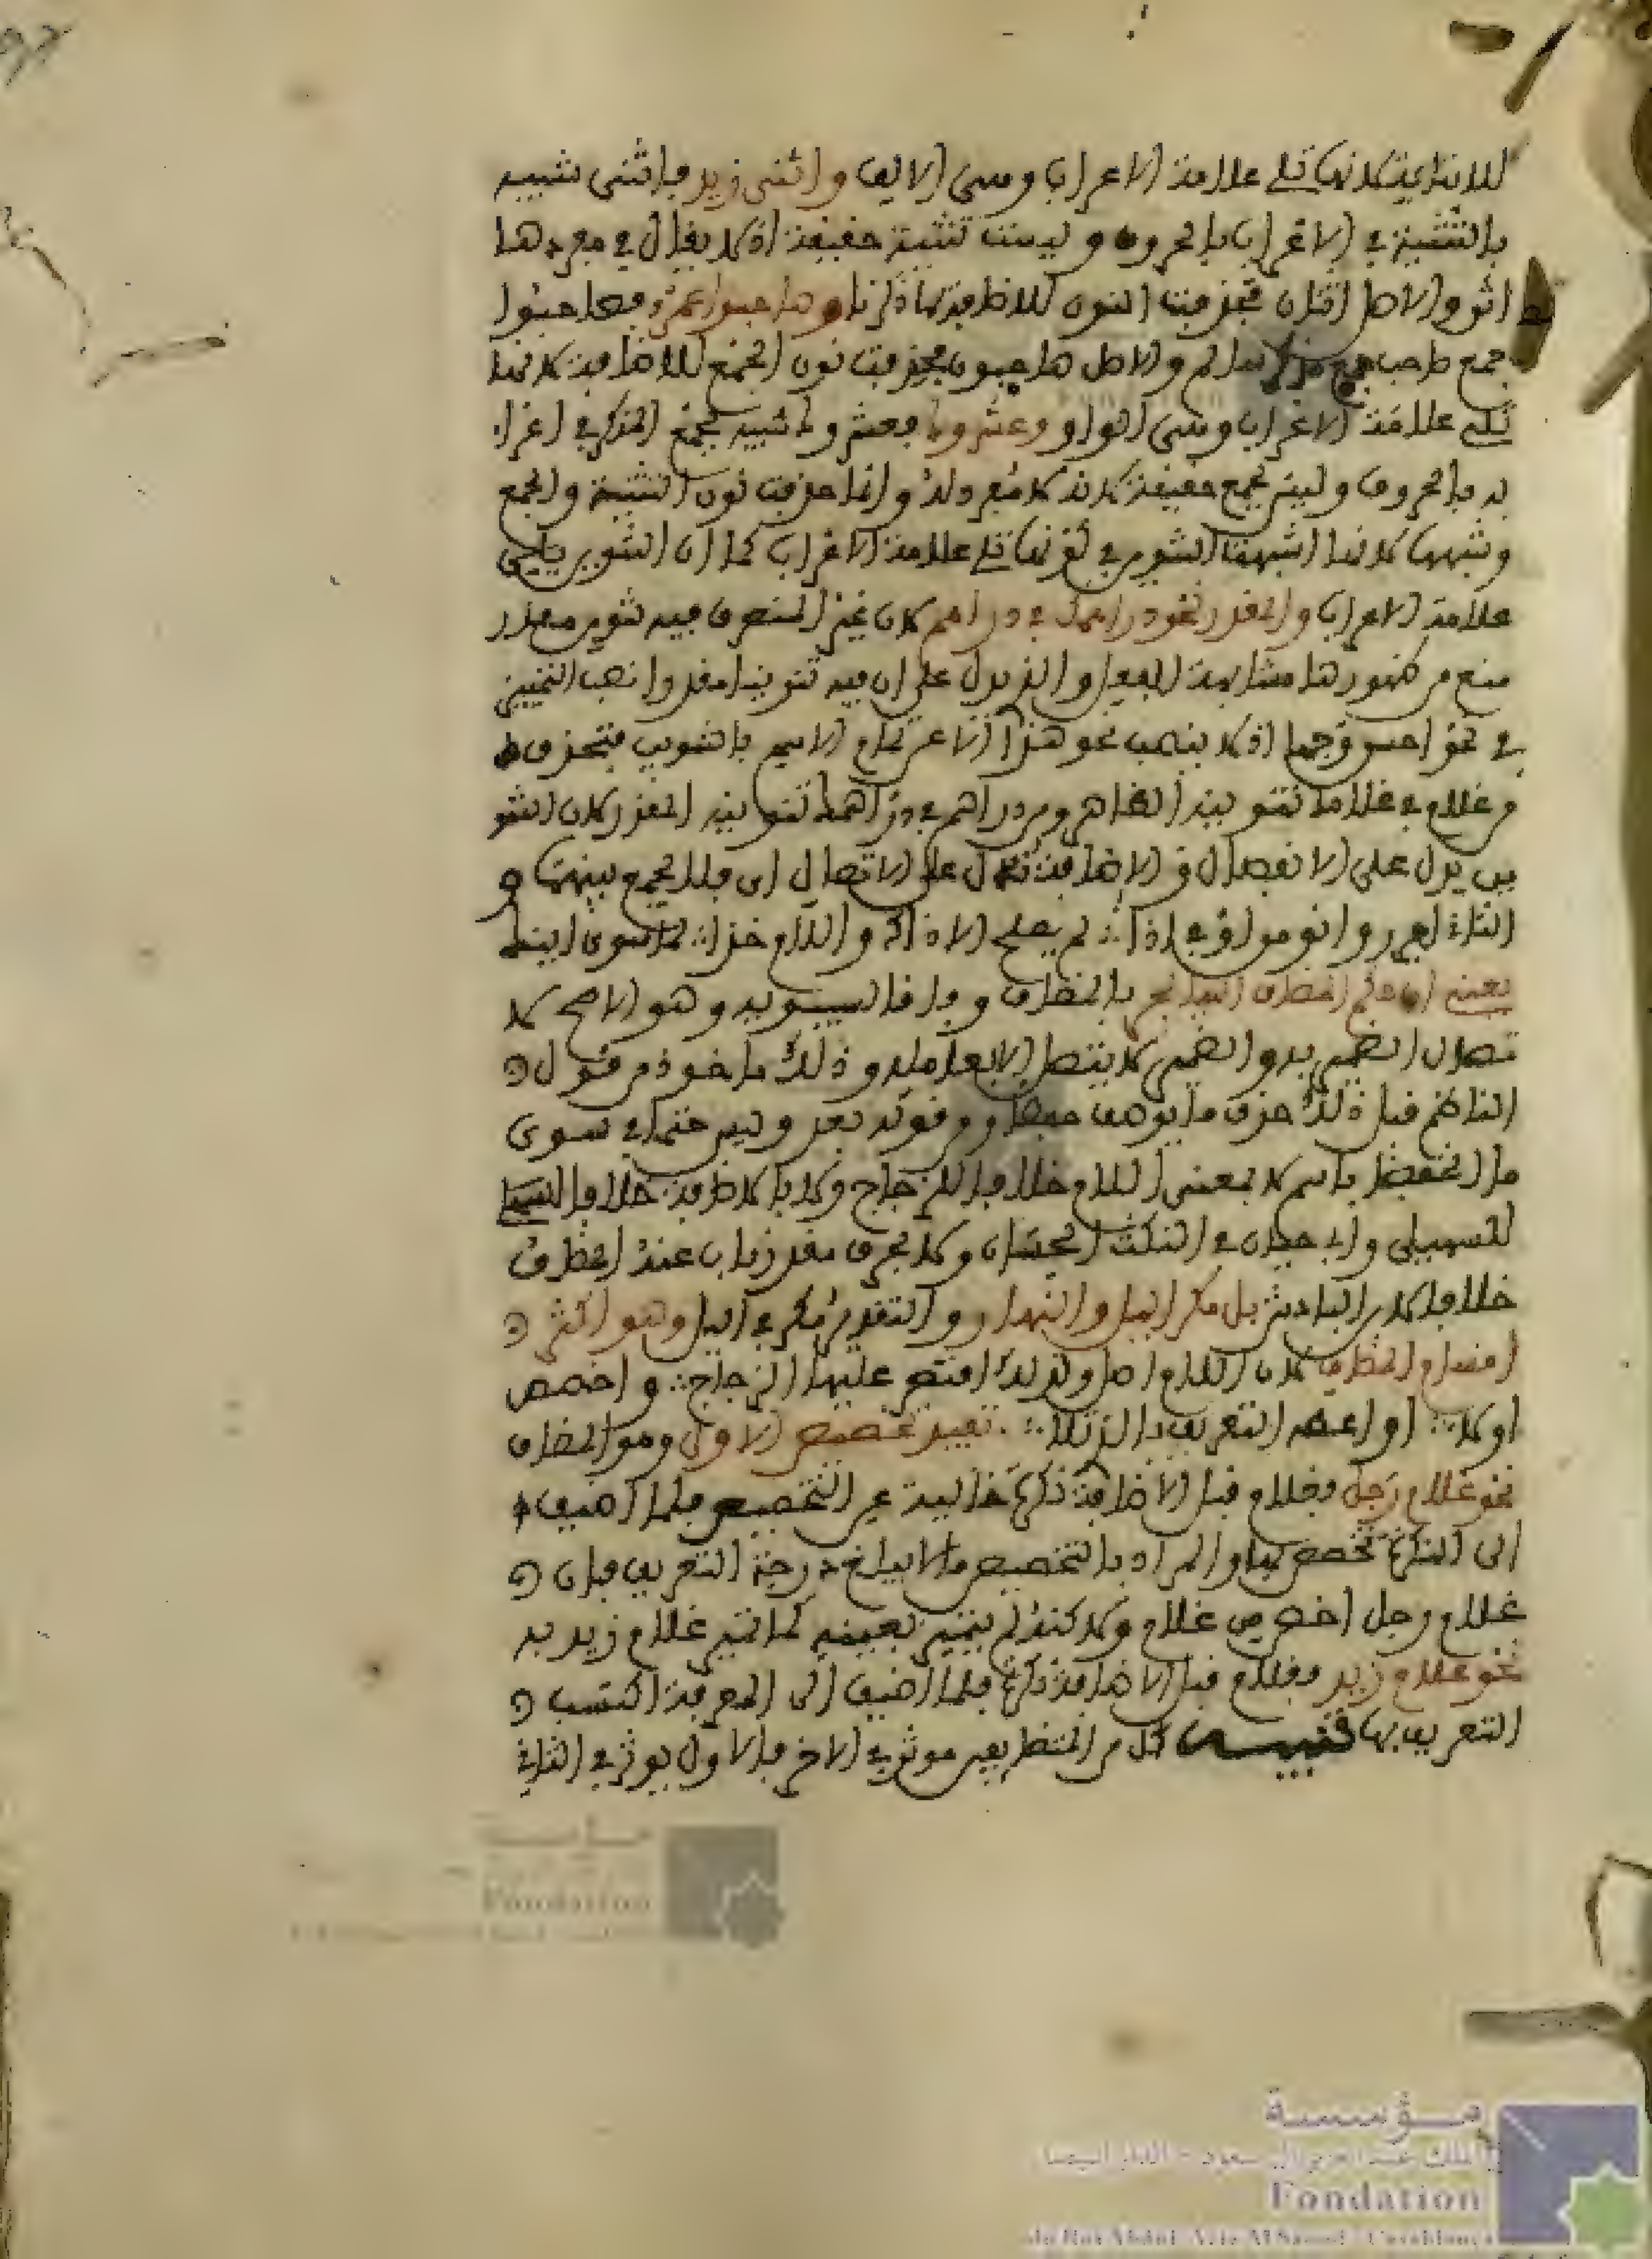 للاضافة لانها تلي علامة الاعراب وهي الالف واثنى زيد فاثنى شبيه
بالتثنية في الاعراب بالحروف وليست تثنية حقيقة اذ لا يقال في مفردها
اثن والاصل اثنان فحذفت النون للاضافة لما ذكرنا وصاحبوا عمرو فصاحبوا
جمع صاحب جمع مذكر سالم والاصل صاحبون فحذفت نون الجمع للاضافة لانها
تلي علامة الاعراب وهي الواو وعشروا فعشروا شبيه بجمع المذكر في اعرا
به بالحروف وليس بجمع حقيقة لانه لا مفرد له وانما حذفت نون التثنية والجمع
وشبهها لانها اشبهت التنوين في كونها تلي علامة الاعراب كما ان التنوين يلي
علامة الاعراب والمقدر نحو دراهمك في دراهم لان غير المنصرف فيه تنوين مقدر
منع من ظهورها مشابهة الفعل والذي يدل على ان فيه تنوينا مقدرا نصب التمييز
في نحو احسن وجها اذ لا ينصب نحو هذا الا عن تمام الاسم بالتنوين فتحذف
من غلام في غلامك تنوينه الظاهر ومن دراهم في دراهمك تنوينه المقدر لان التنو
ين يدل على الانفصال والاضافة تدل على الاتصال اي فلا يجمع بينهما و
الثاني اجرر وانو من او في اذا لم يصلح الا ذاك واللام خذا لما سوى ذينك
يعني ان حكم المضاف اليه الجر بالمضاف وفاقا لسيبويه وهو الاصح لا
تصال الضمير به والضمير لا يتصل الا بعامله وذلك ماخوذ من قول
الناظم قبل ذلك حذف ما يوصف وقوله بعد وليس حتما في سوى
ما انخفض باسم لا بمعنى اللام خلافا للزجاج ولا بالاضافة خلافا
للسهيلي وابي حيان في النكت الحسان ولا بحرف مقدر ناب عنه المضاف
خلافا لابن الباذش بل مكر الليل والنهار والتقدير مكر في الليل وهو اكثر
اقسام المضاف لان اللام اصل ولذلك اقتصر عليها الزجاج واخصص
اولا او اعطه التعريف بالذي تلا تفيد تخصيص الاول وهو المضاف
نحو غلام رجل فغلام قبل الاضافة نكرة خالية عن التخصيص فلما اضيف
الى النكرة تخصص بها والمراد بالتخصيص ما لا يبلغ درجة التعريف فان
غلام رجل اخص من غلام ولاكنه لم يتميز بعينه كما تميز غلام زيد به
نحو غلام زيد فغلام قبل الاضافة نكرة فلما اضيف الى المعرفة اكتسب
التعريف بها تنبيه كل من المتضايفين موثر في الاخر فالاول يوثر في الثاني
مؤسسة
الملك عبد العزيز ال سعود - الدار البيضاء
Fondation
du Roi Abdul-Aziz Al Saoud - Casablanca